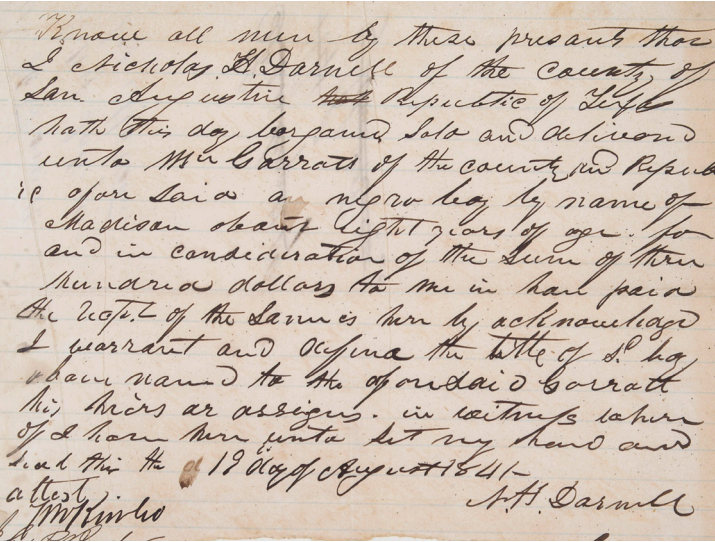 Know all men by these presants that
I Nicholas H. Darnell of the county of
San Augustin Republic of Texas
hath this day bargand Sold and delivered
unto Wm Garratt of the county and Republ
ic afore Said a negro boy by name of
Madison about eight years of age. for
and in consideration of the Sum of three
hundred dollars to me in han paid
the recpt of the Same is here by acknowledgd
I warrant and defend the title of Sd boy
above named to the aforesaid Garratt
his heirs or assigns. in witness where
of I have here unto Set my hand and
seal this the 19 day of August 1841-
attest
N.H. Darnell